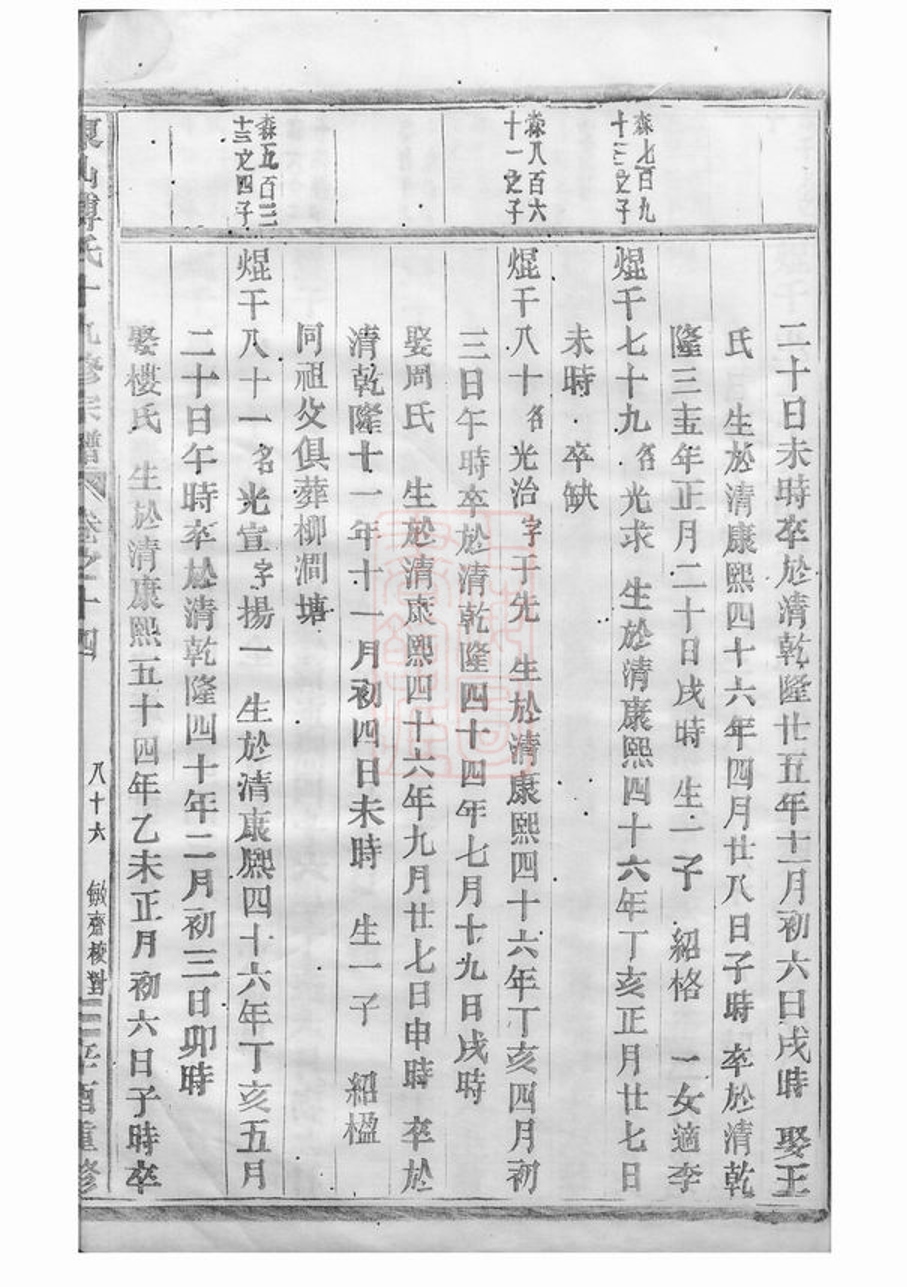 二十日未時卒於清乾隆廿五年十一月初六日戌時 娶王
氏 生於清康熙四十六年四月廿八日子時 卒於清乾
隆三十五年正月二十日戌時 生一子 紹格 一女適李
森七百九
十三之子
焜千七十九 名光求 生於清康熙四十六年丁亥正月廿七日
未時 卒缺
森八百六
十一之子
焜千八十 名光治 字于先 生於清康熙四十六年丁亥四月初
三日午時卒於清乾隆四十四年七月十九日戌時
娶周氏 生於清康熙四十六年九月廿七日申時 卒於
清乾隆十一年十一月初四日未時 生一子 紹楹
同祖父俱葬柳澗塘
森五百三
十三之四子
焜千八十一 名光宣 字揚一 生於清康熙四十六年丁亥五月
二十日午時卒於清乾隆四十年二月初三日卯時
娶樓氏 生於清康熙五十四年乙未正月初六日子時卒
傅氏十九修宗譜 卷之十四 八十六 敏齋校對 辛酉重修